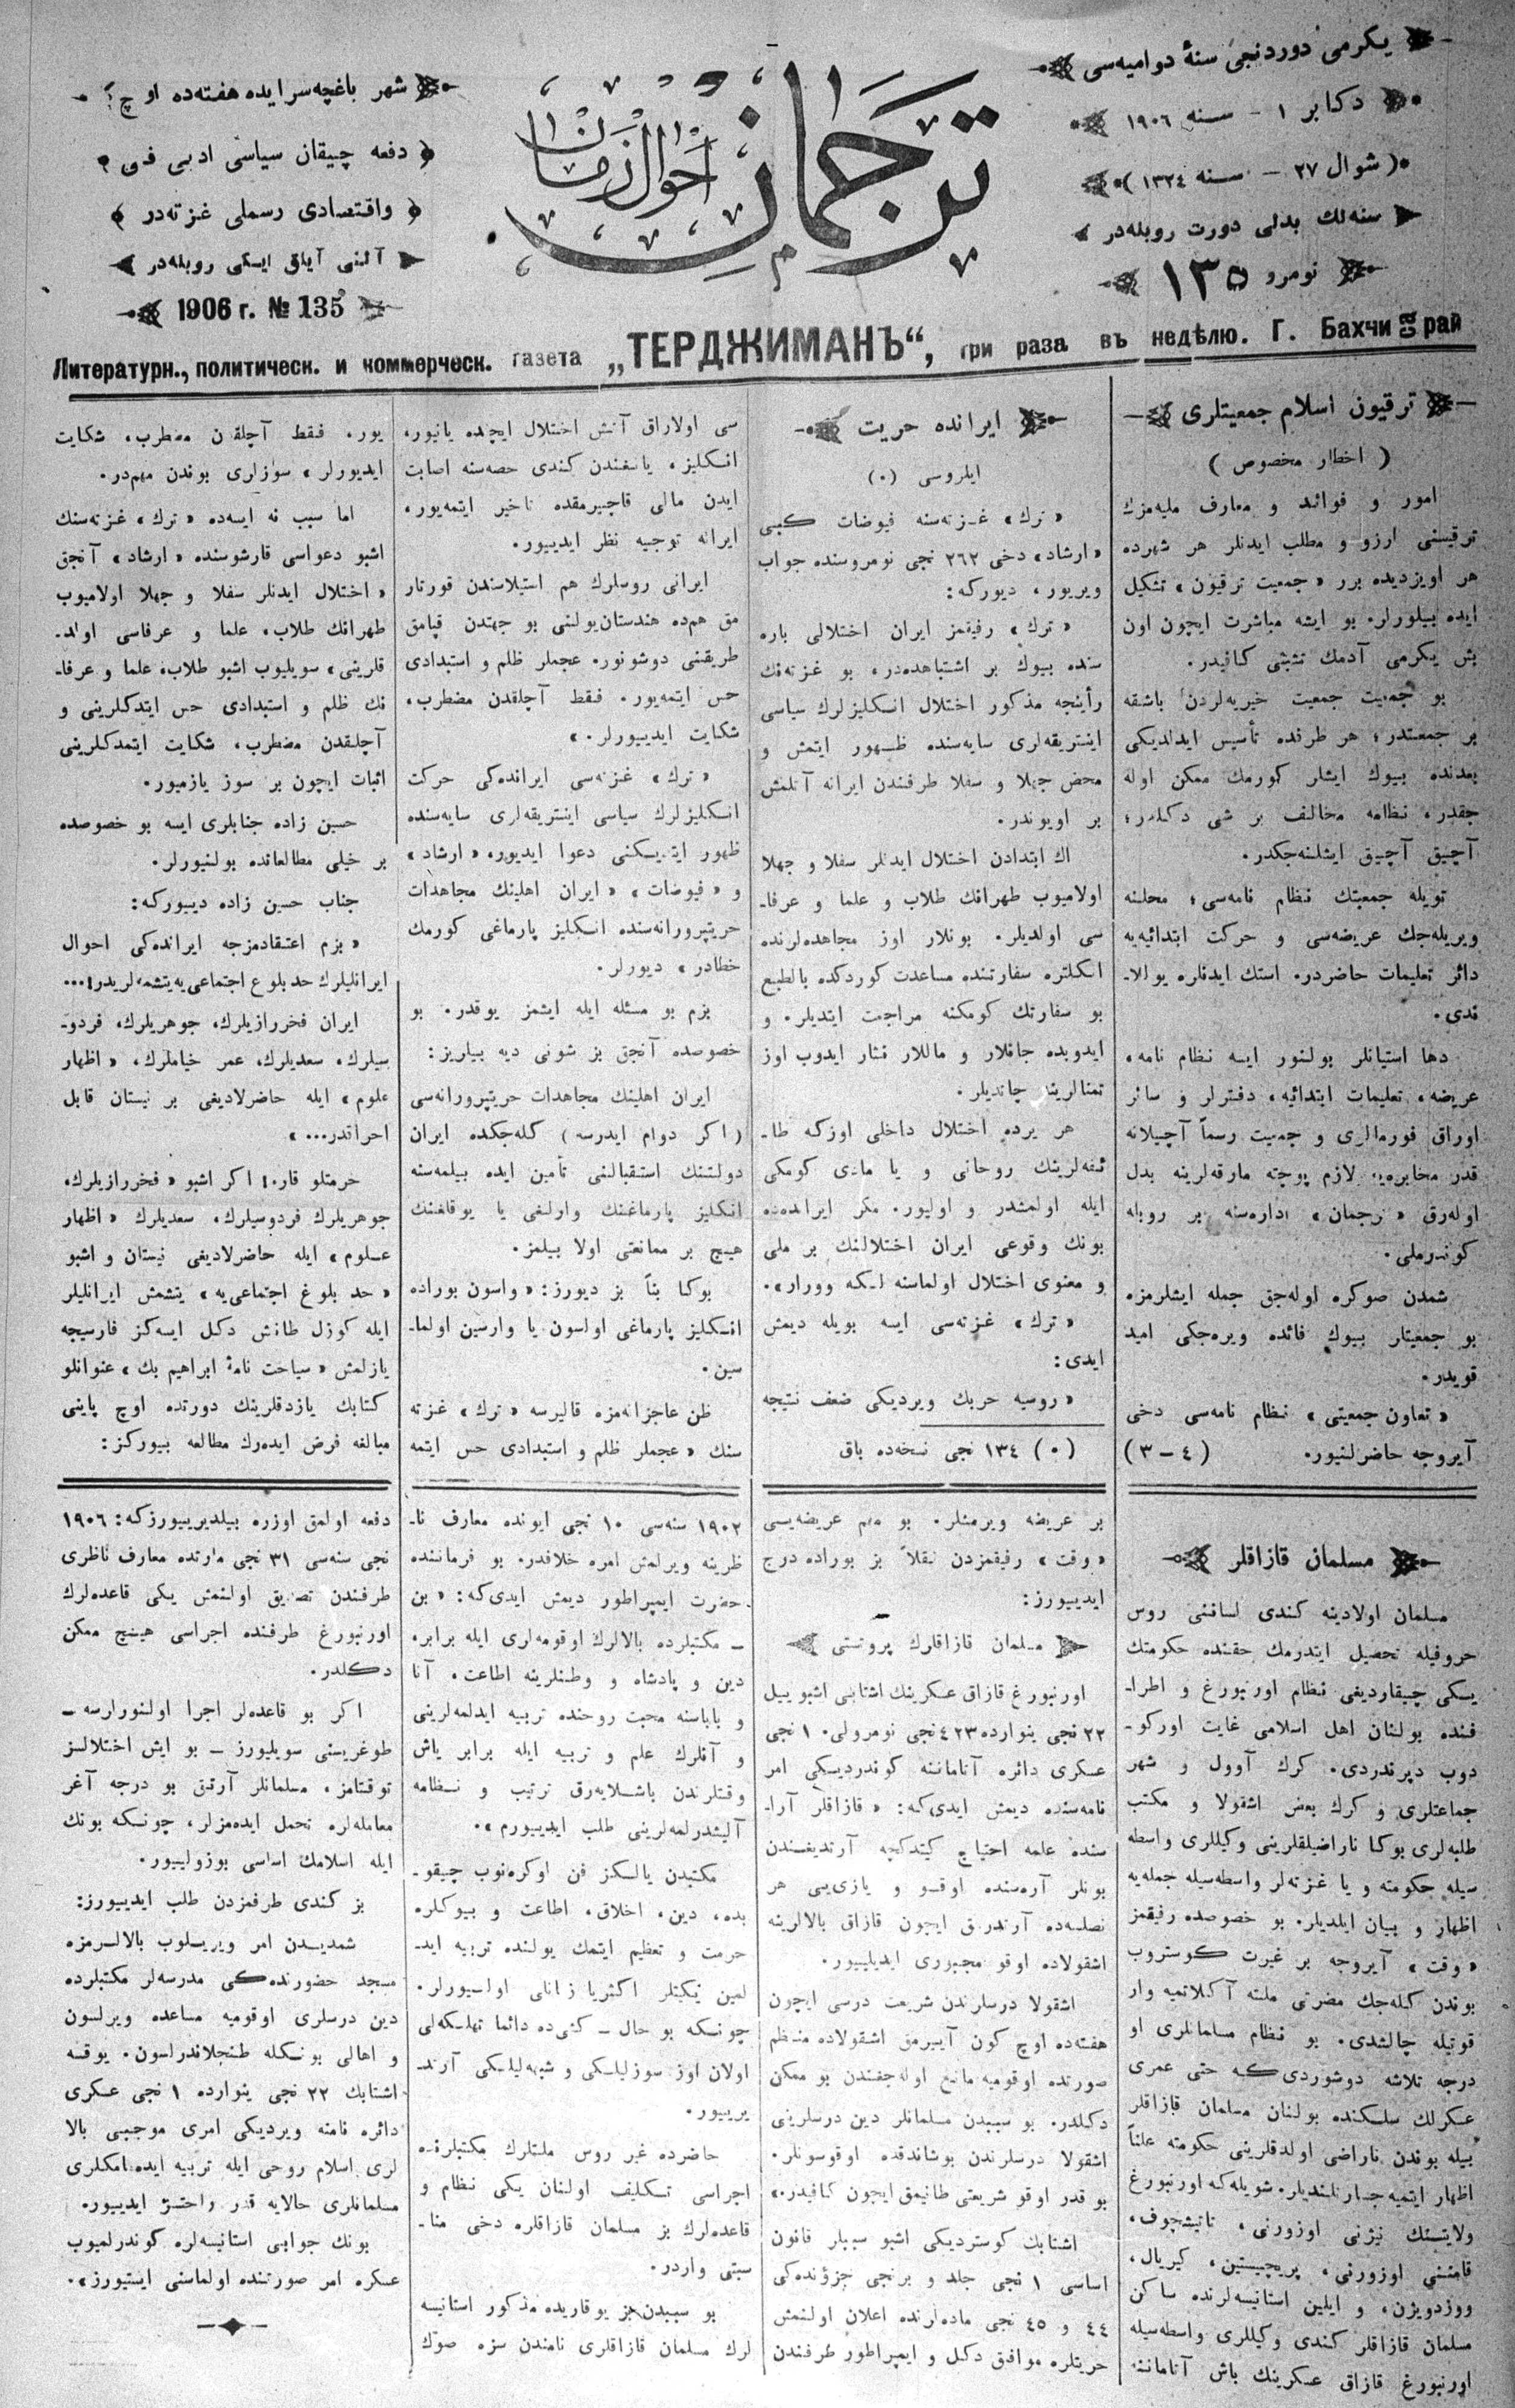 يكرمی دوردنجی سنۀ دواميه‌سی
دكابر ۱ – سنه ۱۹۰٦
(شوال ۲۷ – سنه ۱۳۲٤)
سنه‌لك بدلی دورت روبله‌در
نومرو ۱۳٥
ترجمان
احوال زمان
شهر باغچه‌سرايده هفته‌ده اوچ
دفعه چيقان سياسی ادبی فنی
واقتصادی رسملی غزته‌در
آلتی آيلق ايكی روبله‌در
1906 г. № 135
Литературн., политическ. и коммерческ. газета „ТЕРДЖИМАНЪ“, три раза въ недѣлю. Г. Бахчисарай
ترقيون اسلام جمعيتلری
(اخطار مخصوص)
امور و فوائد و معارف مليه‌مزك
ترقيسنی آرزو و مطلب ايدنلر هر شهرده
هر اويزديده برر «جمعيت ترقيون» تشكيل
ايده بيلورلر. بو ايشه مباشرت ايچون اون
بش يكرمی آدمك تشبثی كافيدر.
بو جمعيت جمعيت خيريه‌لردن باشقه
بر جمعيتدر؛ هر طرفده تأسيس ايدلديكی
بعدنده بيوك ايشلر كورمك ممكن اوله
جقدر، نظامه مخالف بر شی دكلدر؛
آچيق آچيق ايشلنه‌جكدر.
تويله جمعيتك نظام نامه‌سی؛ محلنه
ويريله‌جك عريضه‌سی و حركت ابتدائيه‌يه
دائر تعليمات حاضردر. استك ايدنلره يوللا‍ـ
ندی.
دها استيانلر بولنور ايسه نظام نامه،
عريضه، تعليمات ابتدائيه، دفترلر و سائر
اوراق فورمالری و جمعيت رسماً آچيلانه
قدر مخابره‌يه لازم پوچته مارقه‌لرينه بدل
اوله‌رق «ترجمان» اداره‌سنه بر روبله
كوندرملی.
شمدن صوكره اوله‌جق جمله ايشلرمزه
بو جمعيتلر بيوك فائده ويره‌جكی اميد
قويدر.
«تعاون جمعيتی» نظام نامه‌سی دخی
آيروجه حاضرلنيور. (٤ – ۳)
ايرانده حريت
ايلروسی (۰)
«ترك» غزته‌سنه فيوضات كبی
«ارشاد» دخی ۲٦۲ نجی نومروسنده جواب
ويريور، ديوركه:
«ترك» رفيقمز ايران اختلالی باره
سنده بيوك بر اشتباهده‌در، بو غزته‌نك
رأينجه مذكور اختلال انكليزلرك سياسی
اينتريقه‌لری سايه‌سنده ظهور ايتمش و
محض جهلا و سفلا طرفندن ايرانه آتلمش
بر اويوندر.
اك ابتدادن اختلال ايدنلر سفلا و جهلا
اولاميوب طهرانك طلاب و علما و عرفا‍ـ
سی اولديلر. بونلار اوز مجاهده‌لرنده
انكلتره سفارتنده مساعدت كوردكده بالطبع
بو سفارتك كومكنه مراجعت ايتديلر. و
ايدوبده جانلار و ماللار نثار ايدوب اوز
تمنالرينه چاتديلر.
هر يرده اختلال داخلی اوزكه طا‍ـ
ئفه‌لرينك روحانی و يا مادی كومكی
ايله اولمشدر و اوليور. مكر ايرانده‌ده
بونك وقوعی ايران اختلالنك بر ملی
و معنوی اختلال اولماسنه لكه وورار».
«ترك» غزته‌سی ايسه بويله ديمش
ايدی:
«روسيه حربك ويرديكی ضعف نتيجه
(۰) ۱۳٤ نجی نسخه‌ده باق
سی اولاراق آتش اختلال ايچنده يانيور،
انكليز، يانغندن كندی حصه‌سنه اصابت
ايدن مالی قاچيرمقده تاخير ايتمه‌يور،
ايرانه توجيه نظر ايدييور.
ايرانی روسلرك هم استيلاسندن قورتار
مق همده هندستان يولنی بو جهتدن قپامق
طريقنی دوشونور. عجملر ظلم و استبدادی
حس ايتمه‌يور. فقط آچلقدن مضطرب،
شكايت ايدييورلر.»
«ترك» غزته‌سی ايرانده‌كی حركت
انكليزلرك سياسی اينتريقه‌لری سايه‌سنده
ظهور ايتديكنی دعوا ايديور، «ارشاد»
و «فيوضات» «ايران اهلينك مجاهدات
حريتپرورانه‌سنده انكليز پارماغی كورمك
خطادر» ديورلر.
بزم بو مسئله ايله ايشمز يوقدر. بو
خصوصده آنجق بز شونی ديه بيلريز:
ايران اهلينك مجاهدات حريتپرورانه‌سی
(اكر دوام ايدرسه) كله‌جكده ايران
دولتنك استقبالنی تأمين ايده بيلمه‌سنه
انكليز پارماغنك وارلغی يا يوقلغنك
هيچ بر ممانعتی اولا بيلمز.
بوكا بناً بز ديورز: «واسون بوراده
انكليز پارماغی اولسون يا وارسين اولما‍ـ
سين.
ظن عاجزانه‌مزه قاليرسه «ترك» غزته
سنك «عجملر ظلم و استبدادی حس ايتمه
يور. فقط آچلقدن مضطرب، شكايت
ايديورلر» سوزلری بوندن مهمدر.
اما سبب نه ايسه‌ده «ترك» غزته‌سنك
اشبو دعواسی قارشوسنده «ارشاد» آنجق
«اختلال ايدنلر سفلا و جهلا اولاميوب
طهرانك طلاب، علما و عرفاسی اولد‍ـ
قلرينی» سويليوب اشبو طلاب، علما و عرفا‍ـ
نك ظلم و استبدادی حس ايتدكلرينی و
آچلقدن مضطرب، شكايت ايتمدكلرينی
اثبات ايچون بر سوز يازميور.
حسين زاده جنابلری ايسه بو خصوصده
بر خيلی مطالعاتده بولنيورلر.
جناب حسين زاده دييوركه:
«بزم اعتقادمزجه ايرانده‌كی احوال
ايرانليلرك حد بلوغ اجتماعی‌يه يتشمه‌لريدر!...
ايران فخررازيلرك، جوهريلرك، فردو‍ـ
سيلرك، سعديلرك، عمر خياملرك، «اظهار
علوم» ايله حاضرلاديغی بر نيستان قابل
احراقدر...»
حرمتلو قارء! اكر اشبو «فخررازيلرك،
جوهريلرك فردوسيلرك، سعديلرك «اظهار
علوم» ايله حاضرلاديغی نيستان و اشبو
«حد بلوغ اجتماعی‌يه» يتشمش ايرانليلر
ايله كوزل طانش دكل ايسه‌كز فارسيجه
يازلمش «سياحت نامۀ ابراهيم بك» عنوانلو
كتابك يازدقلرينك دورتده اوچ پاينی
مبالغه فرض ايده‌رك مطالعه بيوركز:
مسلمان قازاقلر
مسلمان اولادينه كندی لساننی روس
حروفيله تحصيل ايتدرمك حقنده حكومتك
يسكی چيقارديغی نظام اورنبورغ و اطرا‍ـ
فنده بولنان اهل اسلامی غايت اوركو‍ـ
دوب دپرتدردی. كرك آوول و شهر
جماعتلری و كرك بعض اشقولا و مكتب
طلبه‌لری بوكا ناراضيلقلرينی وكيللری واسطه
سيله حكومته و يا غزته‌لر واسطه‌سيله جمله‌يه
اظهار و بيان ايلديلر. بو خصوصده رفيقمز
«وقت» آيروجه بر غيرت كوستروب
بوندن كله‌جك مضرتی ملته آكلاتميه وار
قوتيله چالشدی. بو نظام مسلمانلری او
درجه تلاشه دوشوردی كه حتی عمری
عسكرلك سلكنده بولنان مسلمان قازاقلر
بيله بوندن ناراضی اولدقلرينی حكومته علناً
اظهار ايتميه جسارتلنديلر. شويله‌كه اورنبورغ
ولايتنك نيژنی اوزورنی، تانيشچوف،
قامننی اوزورنی، پريچيستين، كيريال،
ووزدويژن، و ايلين استانيسه‌لرنده ساكن
مسلمان قازاقلر كندی وكيللری واسطه‌سيله
اورنبورغ قازاق عسكرينك باش آتاماننه
بر عريضه ويرمشلر. بو مهم عريضه‌يسی
«وقت» رفيقمزدن نقلاً بز بوراده درج
ايدييورز:
مسلمان قازاقلرك پروتستی
اورنبورغ قازاق عسكرينك اشتابی اشبو ييل
۲۲ نجی ينوارده ٤۲۳ نجی نومرولی، ۱ نجی
عسكری دائره آتاماننه كوندرديكی امر
نامه‌سنده ديمش ايدی‌كه: «قازاقلر آرا‍ـ
سنده علمه احتياج كيتدكچه آرتديغندن
بونلر آره‌سنده اوقو و يازی‌يی هر
نصلسه‌ده آرتدرمق ايچون قازاق بالالرينه
اشقولاده اوقو مجبوری ايديلييور.
اشقولا درسلرندن شريعت درسی ايچون
هفته‌ده اوچ كون آييرمق اشقولاده منظم
صورتده اوقوميه مانع اوله‌جغندن بو ممكن
دكلدر. بو سببدن مسلمانلر دين درسلرينی
اشقولا درسلرندن بوشاندقده اوقوسونلر.
بو قدر اوقو شريعتی طانيمق ايچون كافيدر.»
اشتابك كوسترديكی اشبو سببلر قانون
اساسی ۱ نجی جلد و برنجی جزؤنده‌كی
٤٤ و ٤٥ نجی ماده‌لرنده اعلان اولنمش
حريتلره موافق دكل و ايمپراطور طرفندن
۱۹۰۲ سنه‌سی ۱۰ نجی ايونده معارف نا‍ـ
ظرينه ويرلمش امره خلافدر. بو فرماننده
حضرت ايمپراطور ديمش ايدی‌كه: «بن
– مكتبلرده بالالرك اوقومه‌لری ايله برابر،
دين و پادشاه و وطنلرينه اطاعت، آنا
و باباسنه محبت روحنده تربيه ايدلمه‌لرينی
و آنلرك علم و تربيه ايله برابر ياش
وقتلرندن باشلايه‌رق ترتيب و نظامه
آليشدرلمه‌لرينی طلب ايدييورم».
مكتبدن يالكز فن اوكره‌نوب چيقو‍ـ
بده، دين، اخلاق، اطاعت و بيوكلره
حرمت و تعظيم ايتمك يولنده تربيه ايد‍ـ
لمين يكيتلر اكثريا زيانلی اولييورلر.
چونكه بو حال – كنی‌ده دائما تهلكه‌لی
اولان اوز سوزليلكی و شبهه‌ليلكی آرتد‍ـ
يرييور.
حاضرده غير روس ملتلرك مكتبلرنده
اجراسی تكليف اولنان يكی نظام و
قاعده‌لرك بز مسلمان قازاقلره دخی منا‍ـ
سبتی واردر.
بو سببدن بز يوقاريده مذكور استانيسه
لرك مسلمان قازاقلری نامندن سزه صوك
دفعه اولمق اوزره بيلديرييورزكه: ۱۹۰٦
نجی سنه‌سی ۳۱ نجی مارتده معارف ناظری
طرفندن تصديق اولنمش يكی قاعده‌لرك
اورنبورغ طرفنده اجراسی هيچ ممكن
دكلدر.
اكر بو قاعده‌لر اجرا اولنورارسه –
طوغريسنی سويليورز – بو ايش اختلالسز
توقتامز، مسلمانلر آرتق بو درجه آغر
معامله‌لره تحمل ايده‌مزلر، چونكه بونك
ايله اسلامك اساسی بوزولييور.
بز كندی طرفمزدن طلب ايدييورز:
شمديدن امر ويريلوب بالالرمزه
مسجد حضورنده‌كی مدرسه‌لر مكتبلرده
دين درسلری اوقوميه مساعده ويرلسون
و اهالی بونكله طنجلاندرلسون. يوقسه
اشتابك ۲۲ نجی ينوارده ۱ نجی عسكری
دائره نامنه ويرديكی امری موجبی بالا
لری اسلام روحی ايله تربيه ايده‌مامكلری
مسلمانلری حالايه قدر راحتسز ايدييور.
بونك جوابی استانيسه‌لره كوندرلميوب
عسكره امر صورتنده اولماسنی ايستيورز».